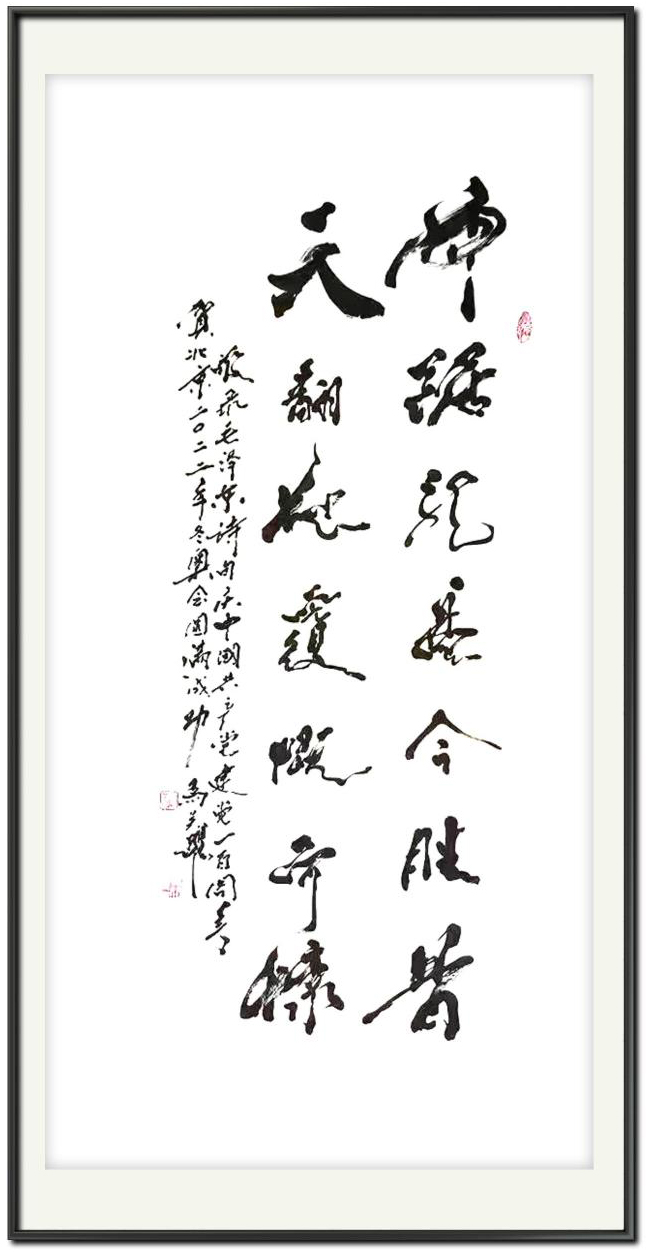 虎踞龙盘今胜昔
天翻地覆慨而慷
敬录毛泽东詩句庆中國共产党建党一百周年
贺北京二〇二二年冬奥会圆满成功 馬